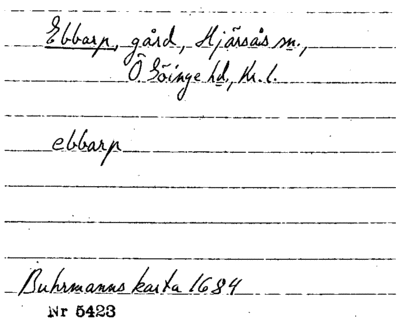 Ebbarp, gård, Hjärsås sn.,
Ö. Göinge hd., Kr. l.
ebbarp
Buhrmanns karta 1684
Nr 5423